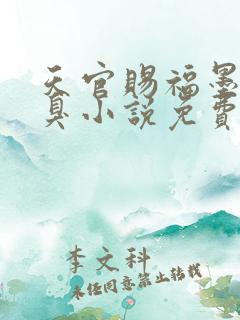 天官赐福墨
真小说免费
李文科
未经同意禁止转载